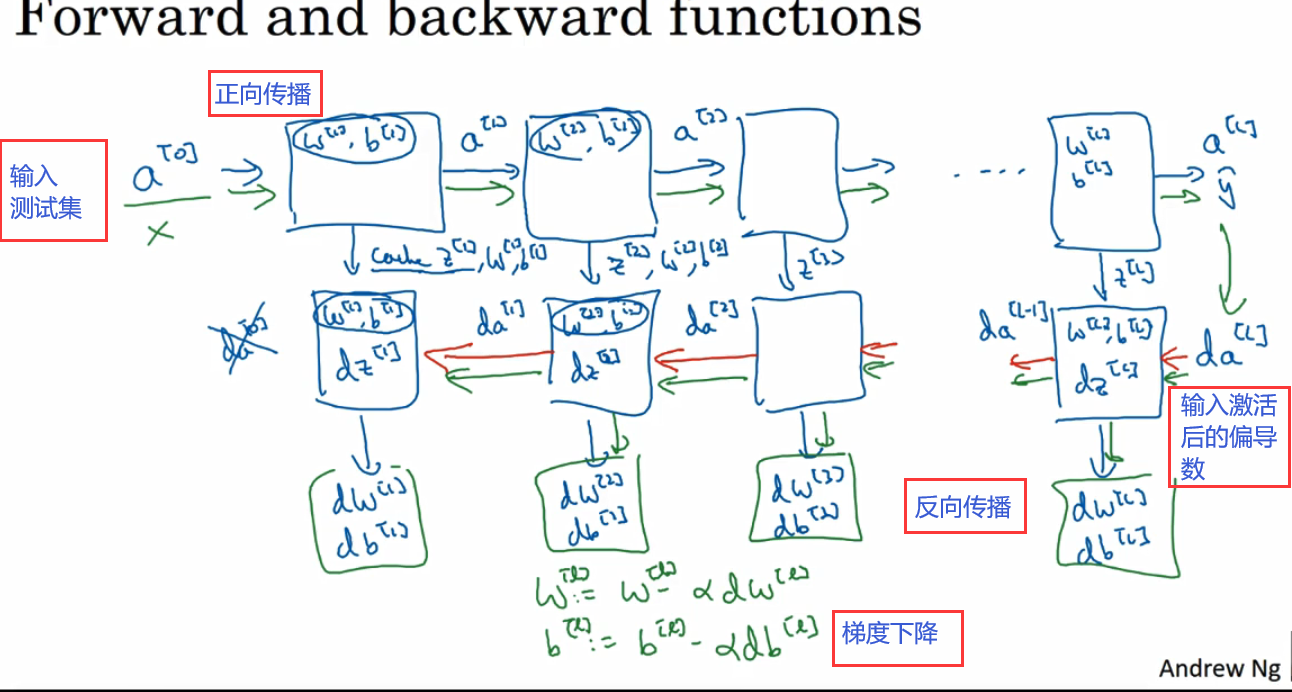 Forward and backward functions
正向传播
输入
测试集
a^[0]
x
w^[1], b^[1]
a^[1]
w^[2], b^[2]
a^[2]
. - - ..
w^[L]
b^[L]
a^[L]
ŷ
cache z^[1], w^[1], b^[1]
z^[2], w^[2], b^[2]
z^[3]
z^[L]
da^[0]
w^[1], b^[1]
dz^[1]
da^[1]
w^[2], b^[2]
dz^[2]
da^[2]
da^[L-1]
w^[L], b^[L]
dz^[L]
da^[L]
输入激活
后的偏导
数
dw^[1]
db^[1]
dw^[2]
db^[2]
dw^[3]
db^[3]
反向传播
dw^[L]
db^[L]
w^[l] := w^[l] - αdw^[l]
b^[l] := b^[l] - αdb^[l]
梯度下降
Andrew Ng